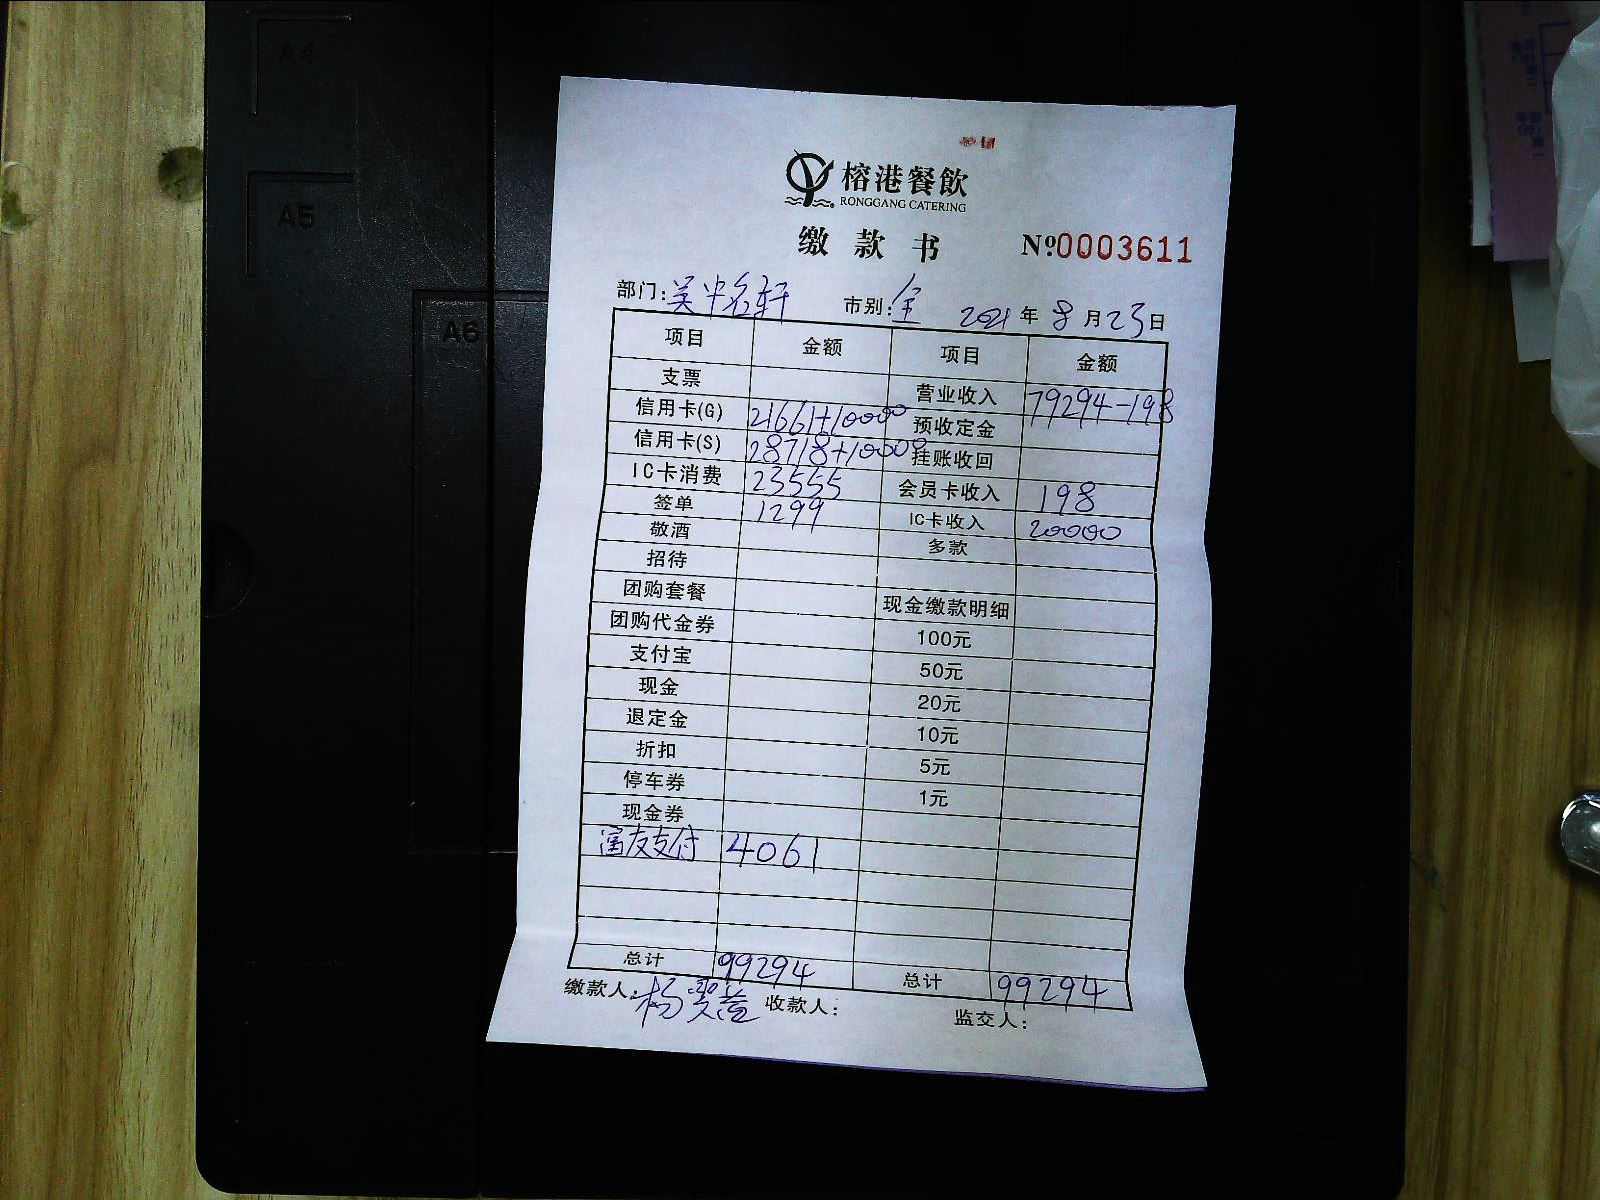 A4
A5
A6
榕港餐飲
RONGGANG CATERING
缴款书 №0003611
部门:吴中名轩 市别:全 2021年8月23日
项目 金额 项目 金额
支票 营业收入 79294-198
信用卡(G) 21661+10000 预收定金
信用卡(S) 28718+10000 挂账收回
IC卡消费 23555 会员卡收入 198
签单 1299 IC卡收入 20000
敬酒 多款
招待
团购套餐 现金缴款明细
团购代金券 100元
支付宝 50元
现金 20元
退定金 10元
折扣 5元
停车券 1元
现金券
富友支付 4061
总计 99294 总计 99294
缴款人:杨 收款人: 监交人: